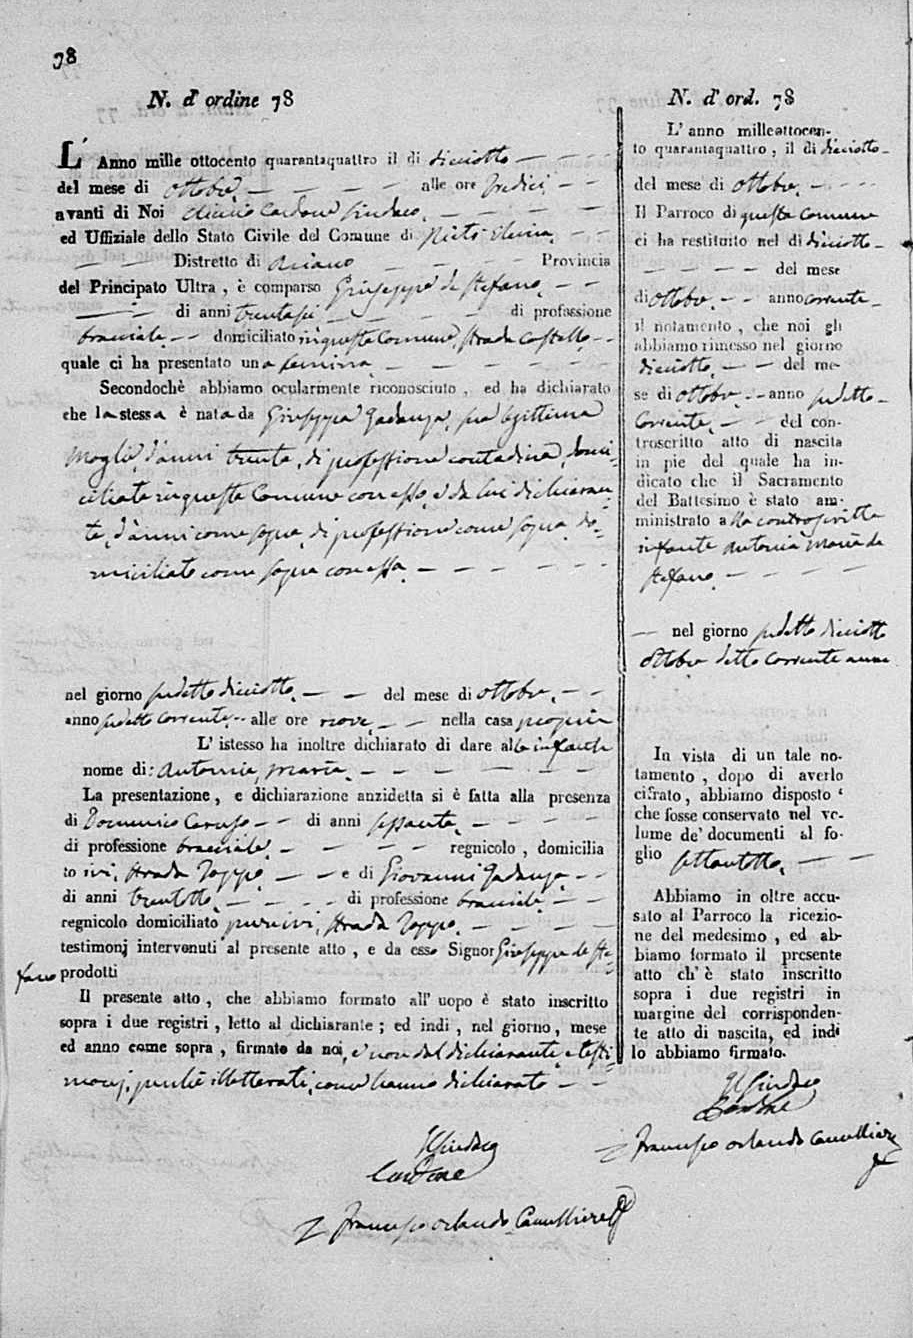 78
N. d' ordine 78
L' Anno mille ottocento quarantaquattro il di diciotto
del mese di ottobre alle ore tredici
avanti di Noi Cardone Sindaco
ed Uffiziale dello Stato Civile del Comune di
Distretto di Ariano Provincia
del Principato Ultra, è comparso Giuseppe de Stefano
di anni trentasei di professione
bracciale domiciliato in questo Comune, strada Castello
quale ci ha presentato una femina
Secondochè abbiamo ocularmente riconosciuto, ed ha dichiarato
che la stessa è nata da Giuseppa Gadanza, sua legittima
moglie, d'anni trenta, di professione contadina, domi-
ciliata in questo Comune con esso, e da lui dichiaran-
te, d'anni come sopra, di professione come sopra, do-
miciliato come sopra con essa
nel giorno sudetto diciotto del mese di ottobre
anno sudetto corrente alle ore nove nella casa propria
L' istesso ha inoltre dichiarato di dare alla infante
nome di: Antonia, Maria
La presentazione, e dichiarazione anzidetta si è fatta alla presenza
di Domenico Caruso di anni sessanta
di professione bracciale regnicolo, domicilia
to ivi, strada Toppo e di Giovanni Gadanza
di anni trentotto di professione bracciale
regnicolo domiciliato pure ivi, strada Toppo
testimonj intervenuti al presente atto, e da esso Signor Giuseppe de Ste-
fano prodotti
Il presente atto, che abbiamo formato all' uopo è stato inscritto
sopra i due registri, letto al dichiarante; ed indi, nel giorno, mese
ed anno come sopra, firmato da noi, e non dal dichiarante e testi-
monj, perchè illetterati, come hanno dichiarato
Il Sindaco
Cardone
Francesco Orlando Cancelliere
N. d' ord. 78
L' anno milleottocen-
to quarantaquattro, il di diciotto
del mese di ottobre
Il Parroco di questo comune
ci ha restituito nel di diciotto
del mese
di ottobre anno corrente
il notamento, che noi gli
abbiamo rimesso nel giorno
diciotto del me-
se di ottobre anno sudetto
corrente del con-
troscritto atto di nascita
in pie del quale ha in-
dicato che il Sacramento
del Battesimo è stato am-
ministrato alla controscritta
infante Antonia Maria de
Stefano
nel giorno sudetto diciotto
ottobre detto corrente anno
In vista di un tale no-
tamento, dopo di averlo
cifrato, abbiamo disposto
che fosse conservato nel vo-
lume de' documenti al fo-
glio settantotto
Abbiamo in oltre accu-
sato al Parroco la ricezio-
ne del medesimo, ed ab-
biamo formato il presente
atto ch' è stato inscritto
sopra i due registri in
margine del corrisponden-
te atto di nascita, ed indi
lo abbiamo firmato.
Il Sindaco
Cardone
Francesco Orlando Cancelliere